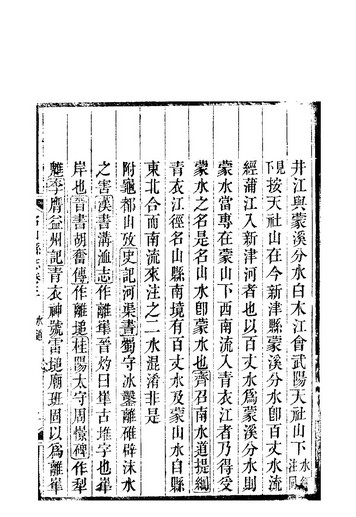 井江與蒙溪分水白木江會武陽天社山下水經注
見按天社山在今新津縣蒙溪分水卽百丈水流
經蒲江入新津河者也以百丈水爲蒙溪分水則
蒙水當專在蒙山下西南流入青衣江者乃得受
蒙水之名是名山水卽蒙水也齊召南水道提綱
青衣江徑名山縣南境有百丈水及蒙山水自縣
東北合而南流來注之二水混淆非是
附龜都山攷史記河渠書蜀守冰鑿離碓辟沫水
之害漢書溝洫志作離𡹐晉灼曰𡹐古堆字也𡹐
岸也晉書胡奮傳作離塠桂陽太守周憬碑作犁
魋李膺益州記青衣神號雷塠廟班固以爲離𡹐
名山縣志卷三 水道